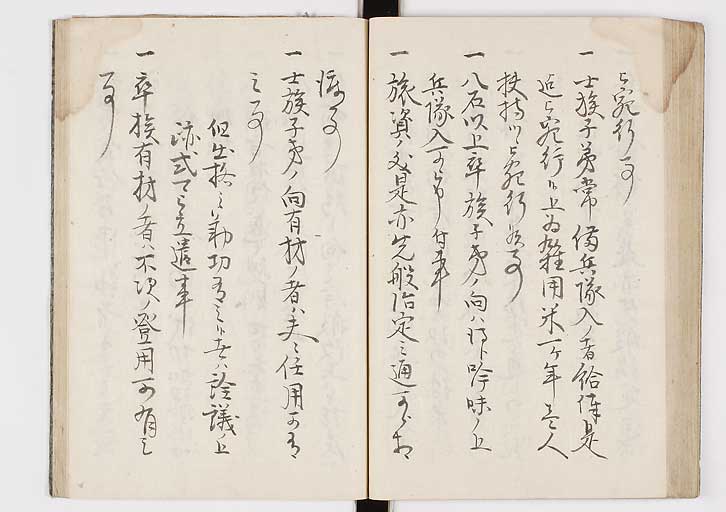 被宛行事
一 士族子弟常備兵隊入ノ者給俸是
迄被宛行候上為雑用米一ケ年壱人
扶持ツヽ被宛行候事
一 八石以上卒族子弟ノ向ハ得ト吟味ノ上
兵隊入可被申付事
一 旅資ノ義是亦先般治定之通可相
渡事
一 士族子弟ノ向有材ノ者ハ夫々任用可有
之事
但出格之勤功有之候者ハ詮議上
跡式可被立遣事
一 卒族有材ノ者ハ不次ノ登用可有之
事